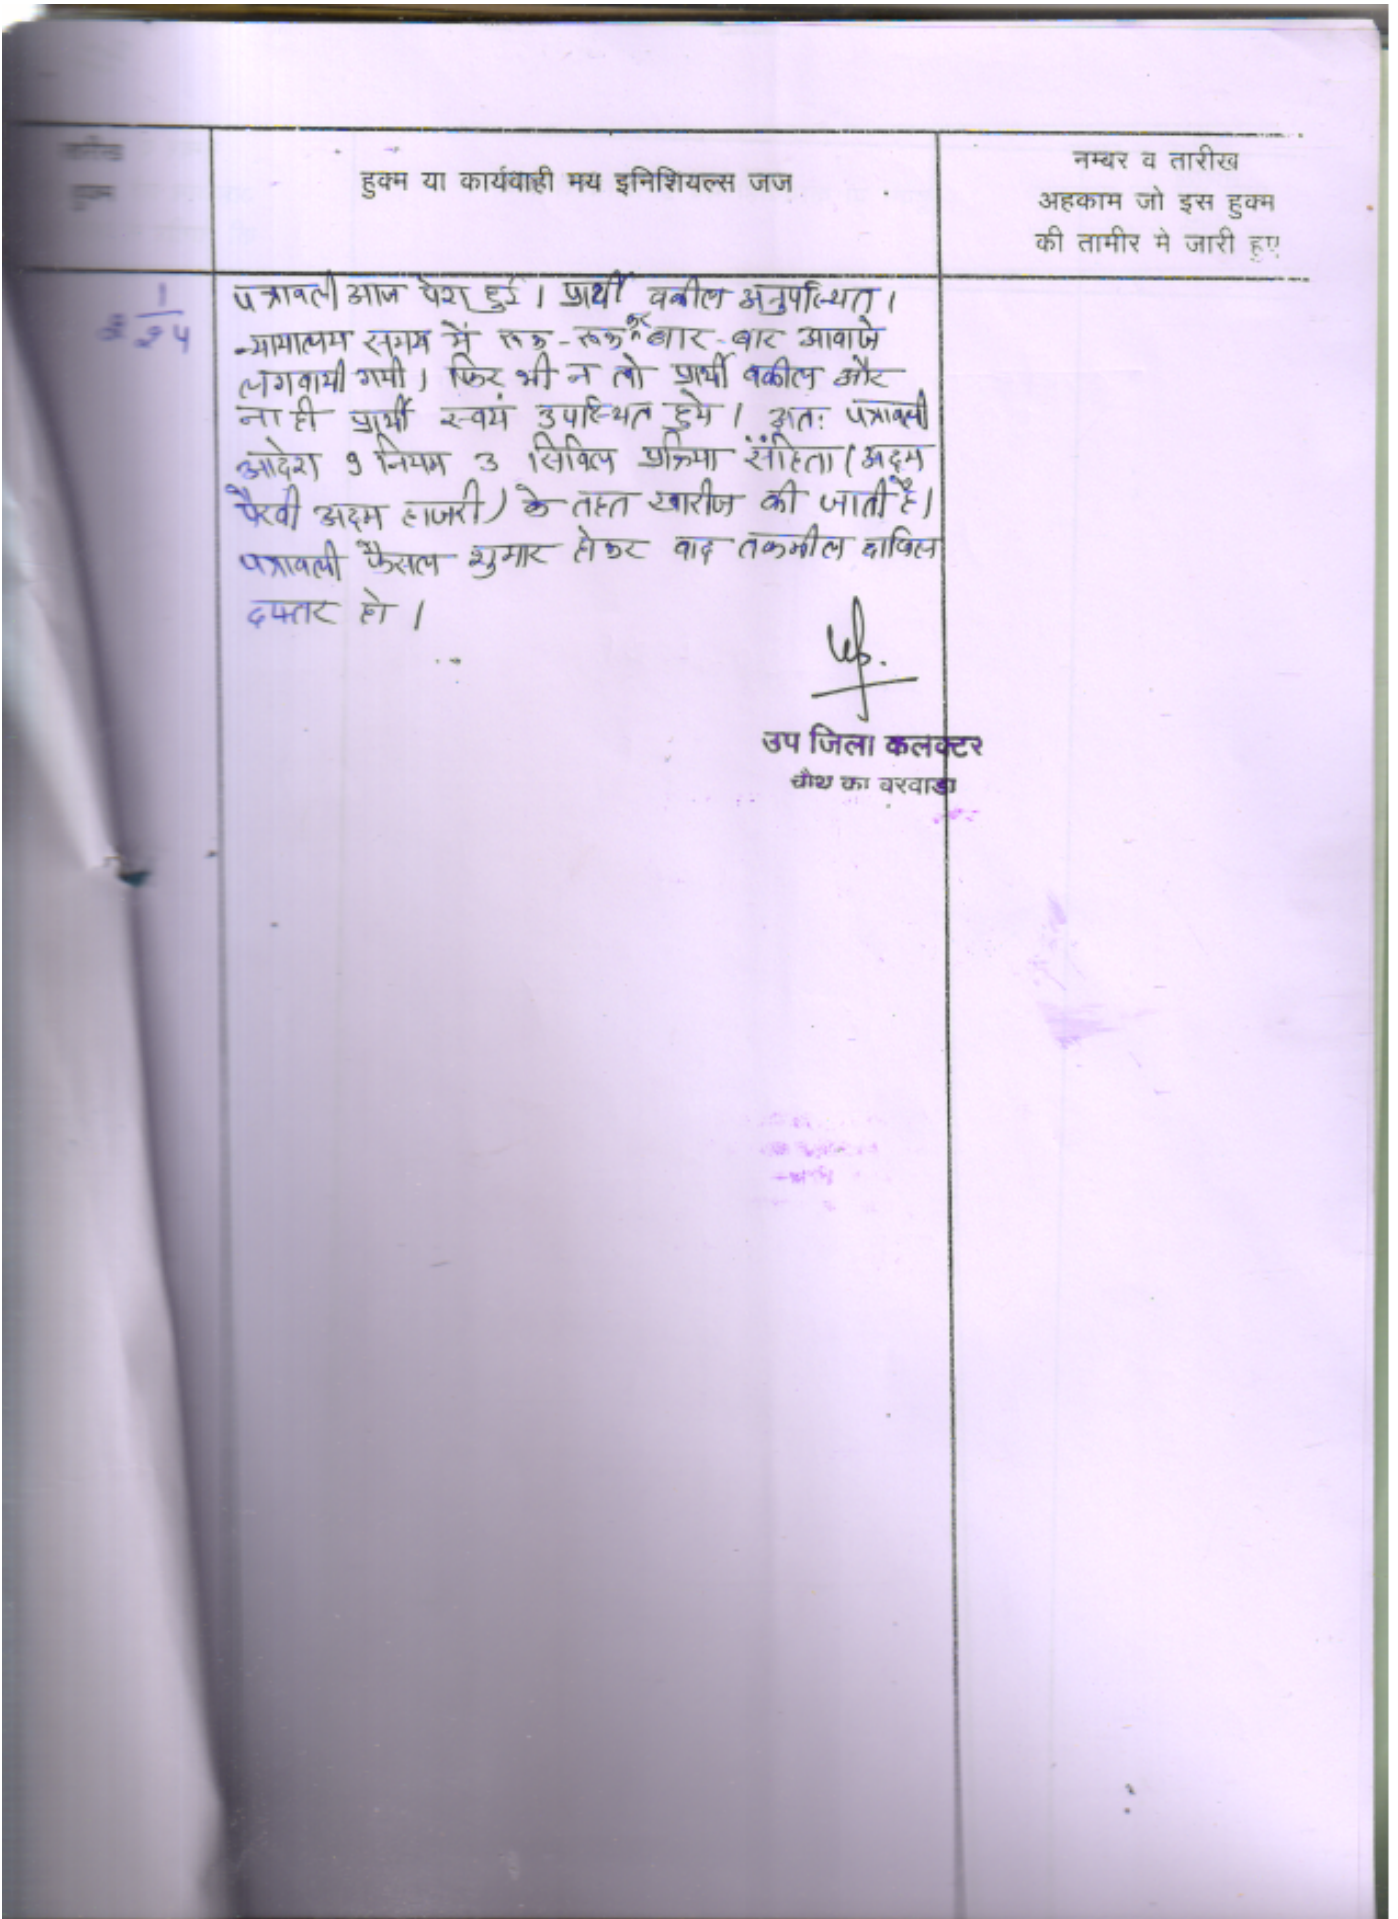 तारीख
हुक्म
हुक्म या कार्यवाही मय इनिशियल्स जज
नम्बर व तारीख
अहकाम जो इस हुक्म
की तामीर मे जारी हुए
पत्रावली आज पेश हुई । प्रार्थी वकील अनुपस्थित ।
न्यायालय समय में रूक-रूक कर बार-बार आवाजे
लगवायी गयी । फिर भी न तो प्रार्थी वकील और
ना ही प्रार्थी स्वयं उपस्थित हुये । अतः पत्रावली
आदेश 9 नियम 3 सिविल प्रक्रिया संहिता (अदम
पैरवी अदम हाजरी) के तहत खारीज की जाती है।
पत्रावली फैसल शुमार होकर बाद तकमील दाखिल
दफ्तर हो ।
उप जिला कलक्टर
चौथ का बरवाडा